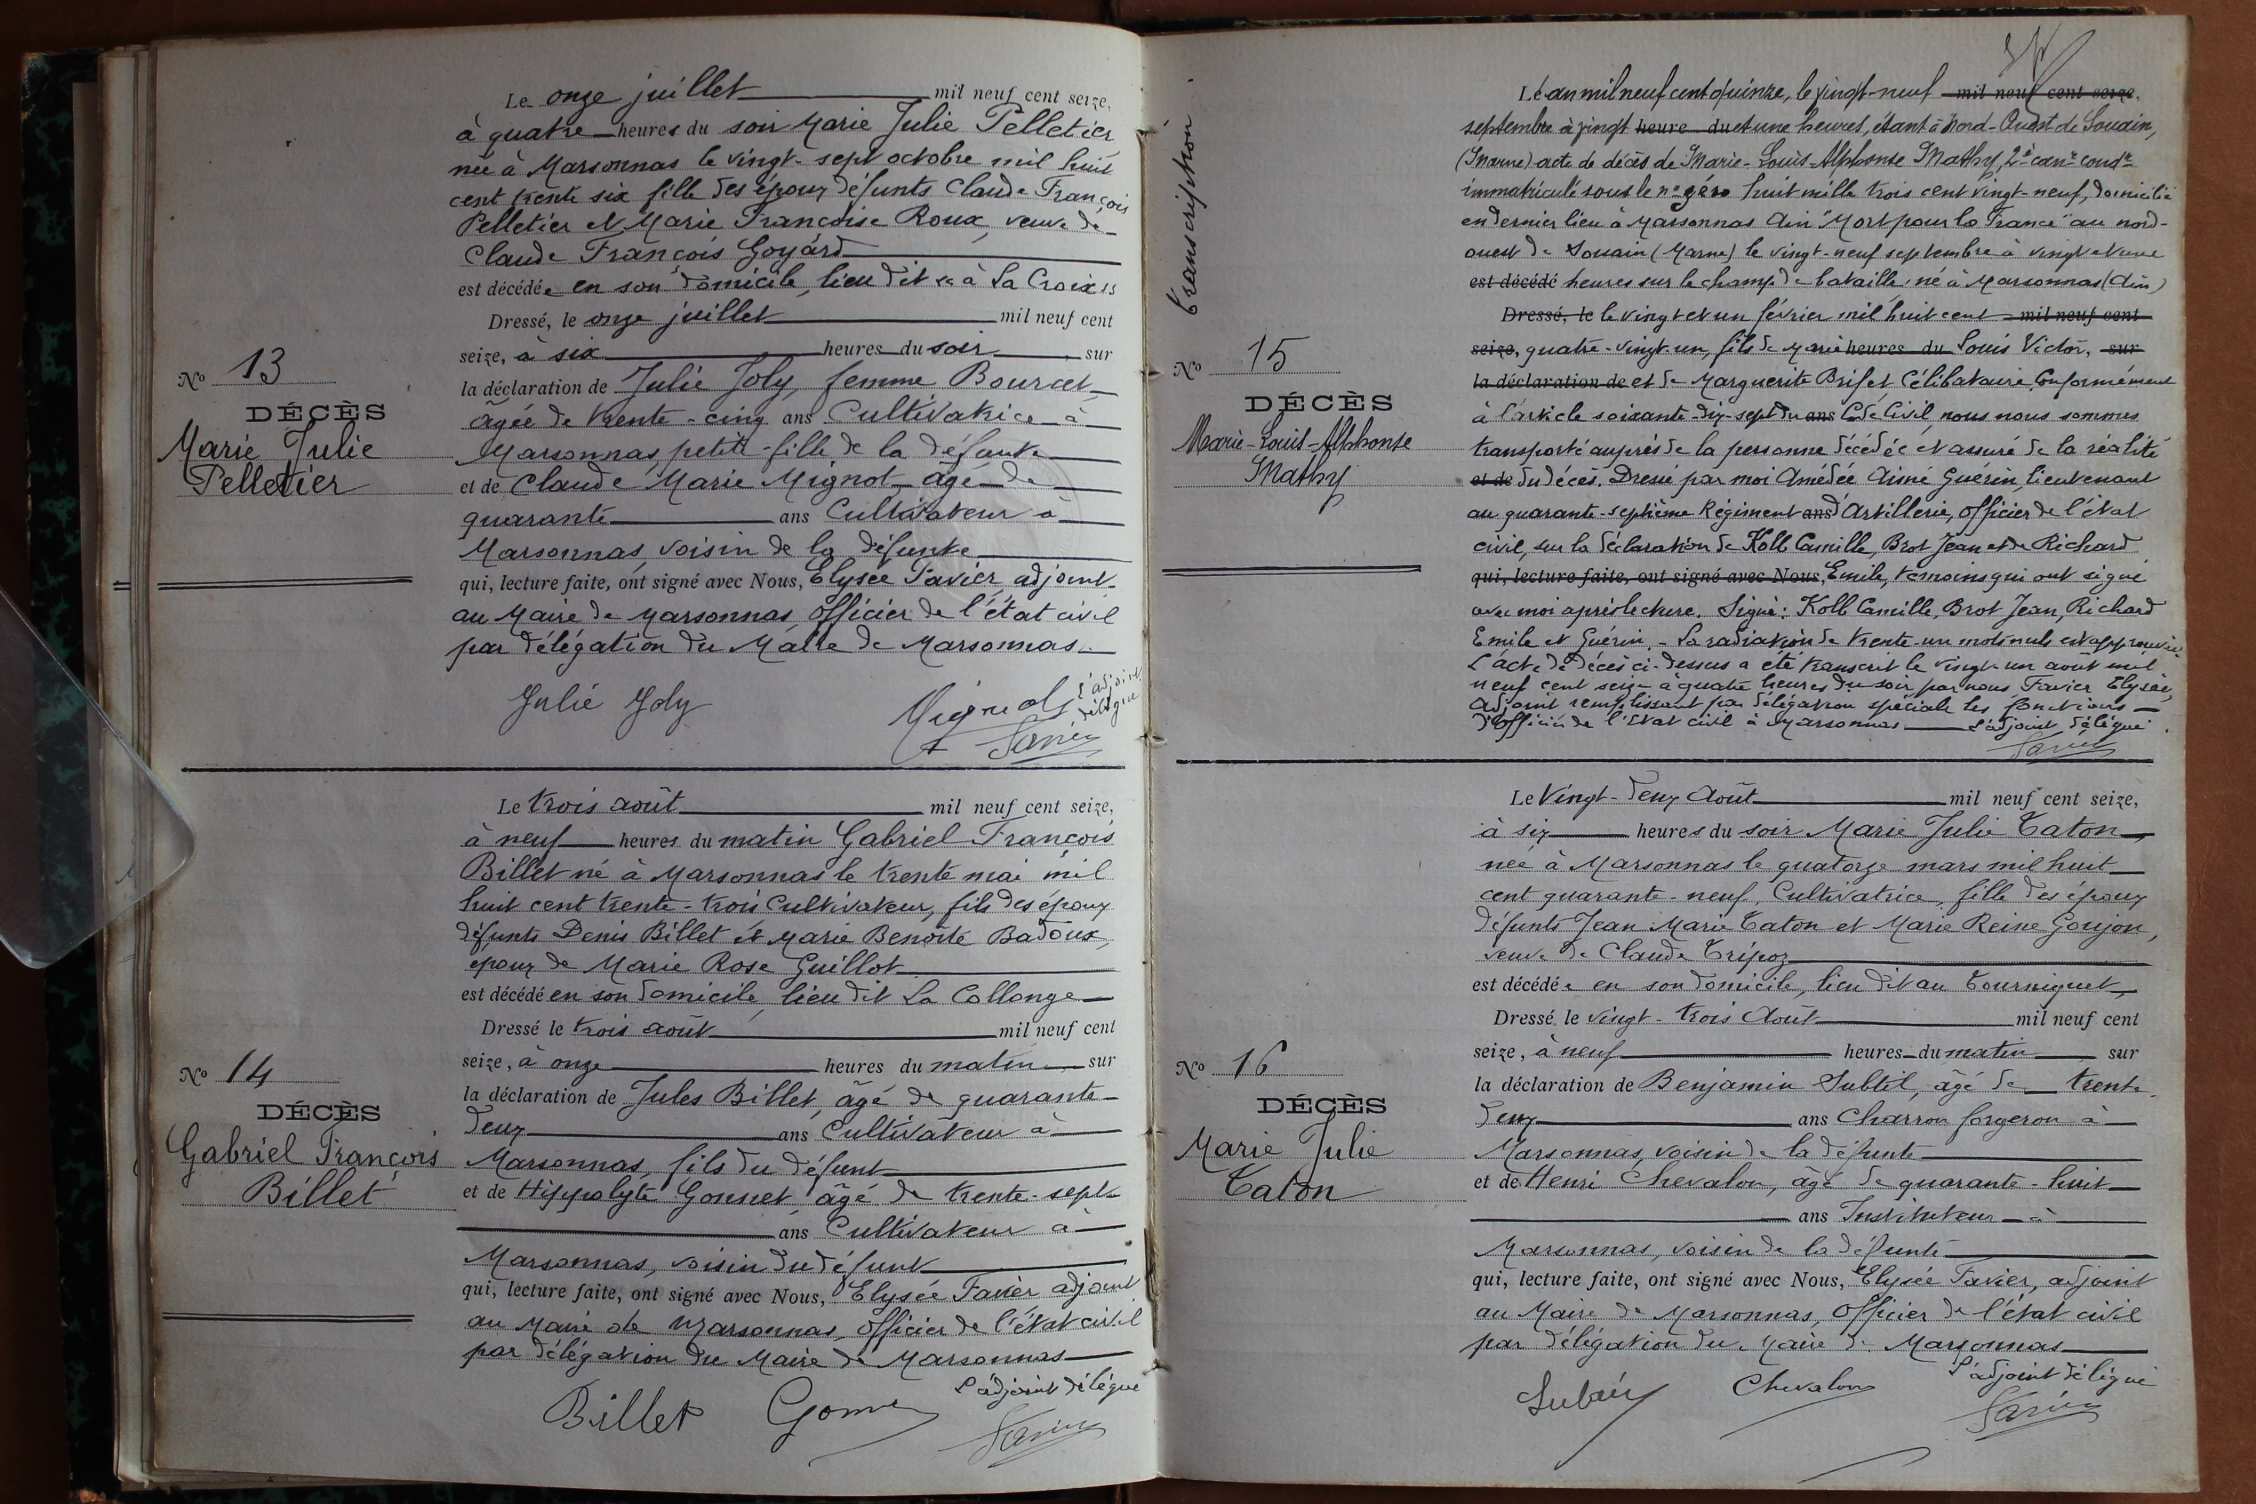 Le onze juillet mil neuf cent seize,
à quatre heures du soir Marie Julie Pelletier
née à Marsonnas le vingt-sept octobre mil huit
cent trente six fille des époux défunts Claude François
Pelletier et Marie Françoise Roux, veuve de
Claude François Goyard
est décédée en son domicile, lieu dit à La Croix
Dressé, le onze juillet mil neuf cent
seize, à six heures du soir, sur
la déclaration de Julie Joly, femme Bourcet
âgée de trente-cinq ans Cultivatrice à
Marsonnas, petite-fille de la défunte
et de Claude Marie Mignot âgé de
quarante ans Cultivateur à
Marsonnas, voisin de la défunte
qui, lecture faite, ont signé avec Nous, Elysée Favier, adjoint
au Maire de Marsonnas, officier de l'état civil
par délégation du Maire de Marsonnas.
Julie Joly Mignot L'adjoint délégué
Favier
No 13
DÉCÈS
Marie Julie
Pelletier
Le trois août mil neuf cent seize,
à neuf heures du matin Gabriel François
Billet né à Marsonnas le trente mai mil
huit cent trente-trois Cultivateur, fils des époux
défunts Denis Billet et Marie Benoîte Badoux,
époux de Marie Rose Guillot
est décédé en son domicile, lieu dit La Collonge
Dressé le trois août mil neuf cent
seize, à onze heures du matin sur
la déclaration de Jules Billet, âgé de quarante-
deux ans Cultivateur à
Marsonnas, fils du défunt
et de Hippolyte Gonnet, âgé de trente-sept
ans Cultivateur à
Marsonnas, voisin du défunt
qui, lecture faite, ont signé avec Nous, Elysée Favier adjoint
au Maire de Marsonnas, officier de l'état civil
par délégation du Maire de Marsonnas
Billet Gonnet L'adjoint délégué
Favier
No 14
DÉCÈS
Gabriel François
Billet
Transcription
Le an mil neuf cent quinze, le vingt-neuf mil neuf cent seize,
septembre à vingt heure du et une heures, étant à Nord-Ouest de Souain,
(Marne) acte de décès de Marie-Louis-Alphonse Mathy, 2e canr condr
immatriculé sous le no zéro huit mille trois cent vingt-neuf, domicilié
en dernier lieu à Marsonnas Ain "Mort pour la France" au nord-
ouest de Souain (Marne) le vingt-neuf septembre à vingt et une
est décédé heures sur le champ de bataille, né à Marsonnas (Ain)
Dressé, le le vingt et un février mil huit cent mil neuf cent
seize, quatre-vingt-un, fils de Marie heures du Louis Victor, sur
la déclaration de et de Marguerite Brifet Célibataire. Conformément
à l'article soixante-dix-sept du ans Code Civil, nous nous sommes
transporté auprès de la personne décédée et assuré de la réalité
et de du décès. Dressé par moi Amédée Aimé Guérin, lieutenant
au quarante-septième Régiment ans d'Artillerie, officier de l'état
civil, sur la déclaration de Kolb Camille, Brot Jean et de Richard
qui, lecture faite, ont signé avec Nous, Emile, témoins qui ont signé
avec moi après lecture. Signé: Kolb Camille, Brot Jean, Richard
Emile et Guérin. - La radiation de trente-un mots nuls est approuvée
L'acte de décès ci-dessus a été transcrit le vingt-un août mil
neuf cent seize à quatre heures du soir, par nous Favier Elysée,
adjoint remplissant par délégation spéciale les fonctions
d'Officier de l'Etat civil à Marsonnas L'adjoint délégué
Favier
No 15
DÉCÈS
Marie-Louis-Alphonse
Mathy
Le Vingt-deux Août mil neuf cent seize,
à six heures du soir Marie Julie Caton,
née à Marsonnas le quatorze mars mil huit
cent quarante-neuf, Cultivatrice, fille des époux
défunts Jean Marie Caton et Marie Reine Goujon,
veuve de Claude Tripoz
est décédée en son domicile, lieu dit au Tourniquet,
Dressé, le vingt-trois Août mil neuf cent
seize, à neuf heures du matin sur
la déclaration de Benjamin Subtil, âgé de trente-
deux ans Charron forgeron à
Marsonnas, voisin de la défunte
et de Henri Chevalon, âgé de quarante-huit
ans Instituteur à
Marsonnas, voisin de la défunte
qui, lecture faite, ont signé avec Nous, Elysée Favier, adjoint
au Maire de Marsonnas, Officier de l'état civil
par délégation du Maire de Marsonnas
Chevalon L'adjoint délégué
Favier
No 16
DÉCÈS
Marie Julie
Caton